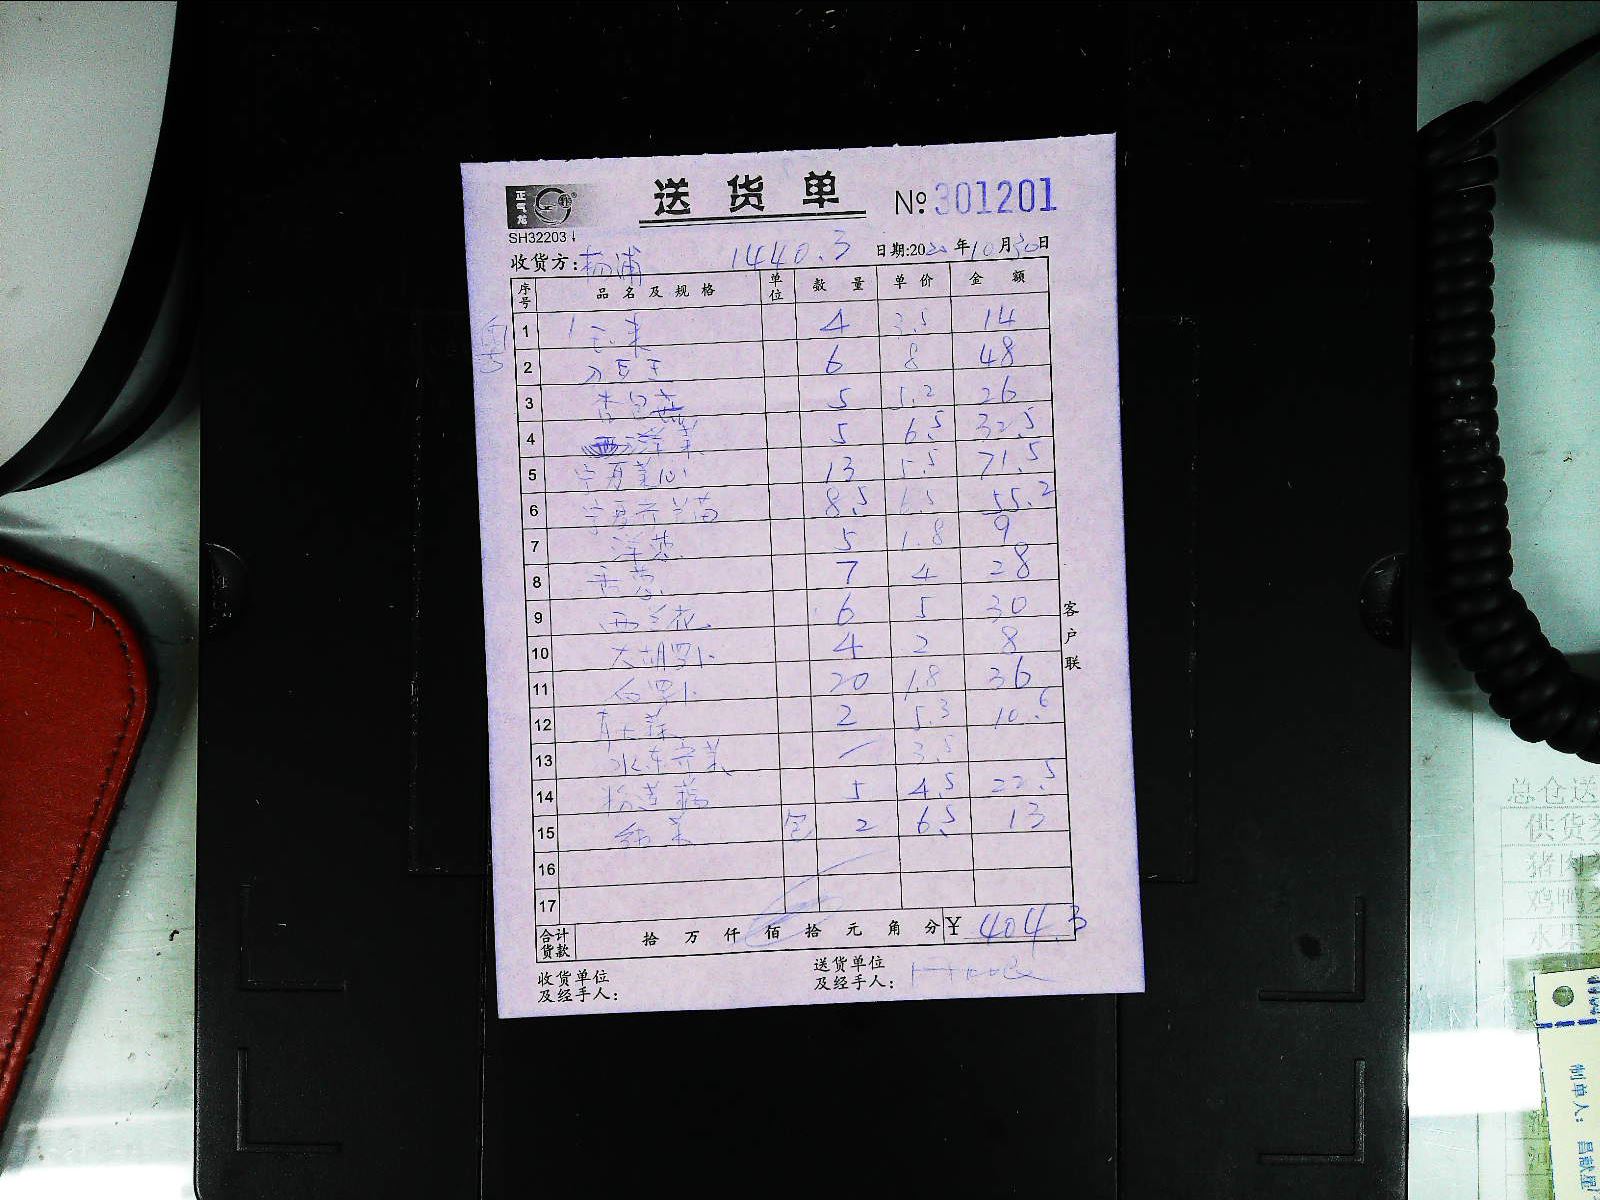 正气龙
送货单
№301201
SH32203
收货方:杨浦 1440.3 日期:2020年10月30日
序号 品名及规格 单位 数量 单价 金额
1 玉米 4 3.5 14
2 刀豆王 6 8 48
3 杏包菇 5 5.2 26
4 洋菜 5 6.5 32.5
5 宁夏菜心 13 5.5 71.5
6 宁夏芥兰苗 8.5 6.5 55.2
7 洋葱 5 1.8 9
8 香葱 7 4 28
9 西兰花 6 5 30
10 大胡罗卜 4 2 8
11 白罗卜 20 1.8 36
12 2 5.3 10.6
13 水东芥菜 3.5
14 粉莲藕 5 4.5 22.5
15 包 2 6.5 13
16
17
合计货款 拾万仟佰拾元角分 ¥404.3
收货单位及经手人:
送货单位及经手人:
客户联
总仓送
供货类
猪肉类
鸡鸭类
水果
制单人: 昌献